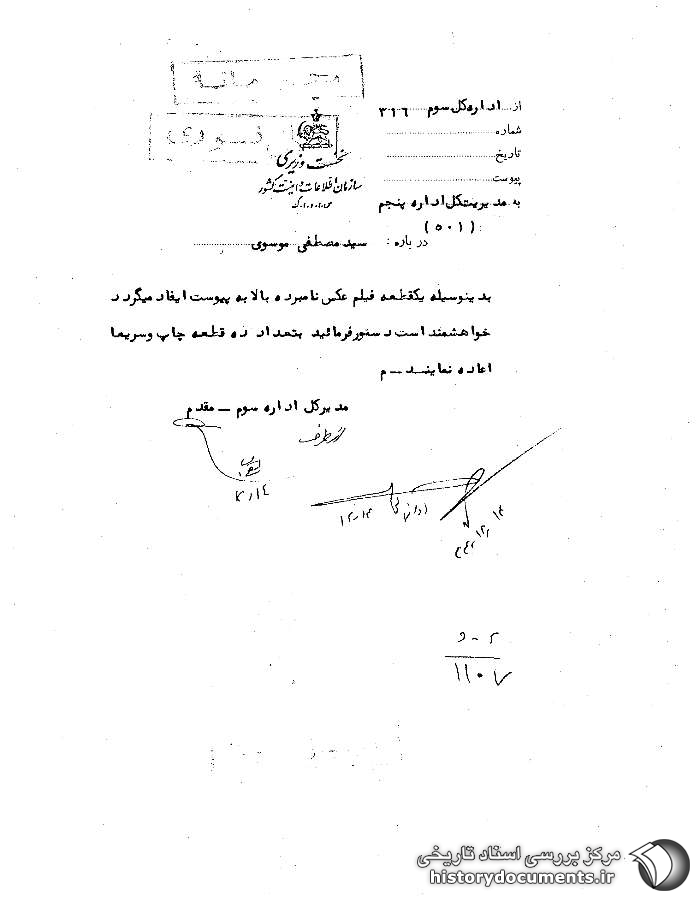 محرمانه
از اداره کل سوم ۳۱۶
فوری
شماره
نخست وزیری
تاریخ
سازمان اطلاعات و امنیت کشور
پیوست
س.ا.و.ا.ک
به مدیریت کل اداره پنجم
(۵۰۱)
درباره : سید مصطفی موسوی
بدینوسیله یکقطعه فیلم عکس نامبرده بالا به پیوست ایفاد میگردد
خواهشمند است دستور فرمائید بتعداد ده قطعه چاپ و سریعا
اعاده نمایند — م
مدیرکل اداره سوم — مقدم
از طرف
۲ - و
۱۱۰۷
مرکز بررسی اسناد تاریخی
historydocuments.ir